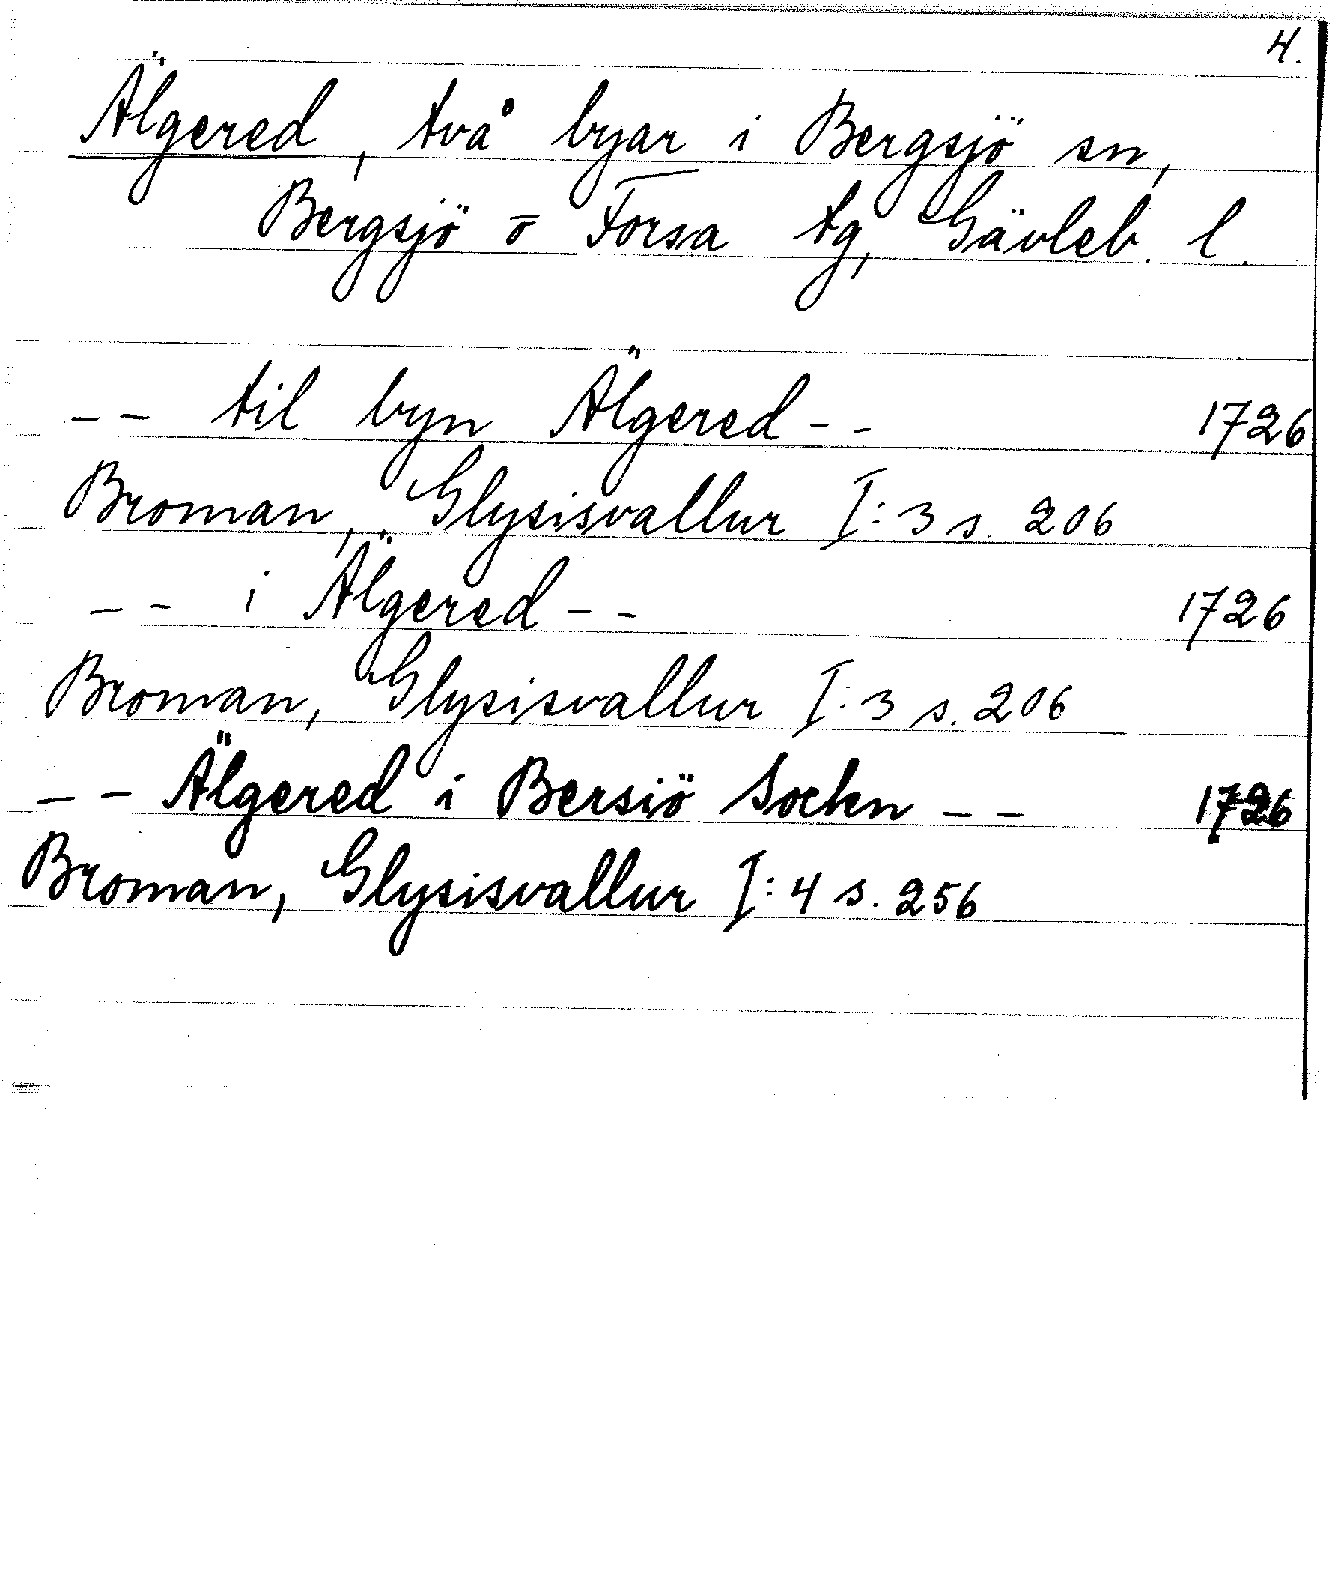 4.
Älgered, två byar i Bergsjö sn,
Bergsjö o Forsa tg, Gävleb. l.
-- til byn Älgered -- 1726
Broman, Glysisvallur I:3 s. 206
-- i Älgered -- 1726
Broman, Glysisvallur I:3 s. 206
-- Älgered i Bersiö Sockn -- 1726
Broman, Glysisvallur I:4 s. 256